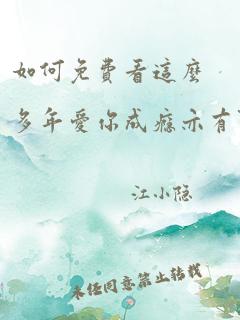 如何免費看這麼
多年愛你成癮亦有
江小隐
未经同意禁止转载